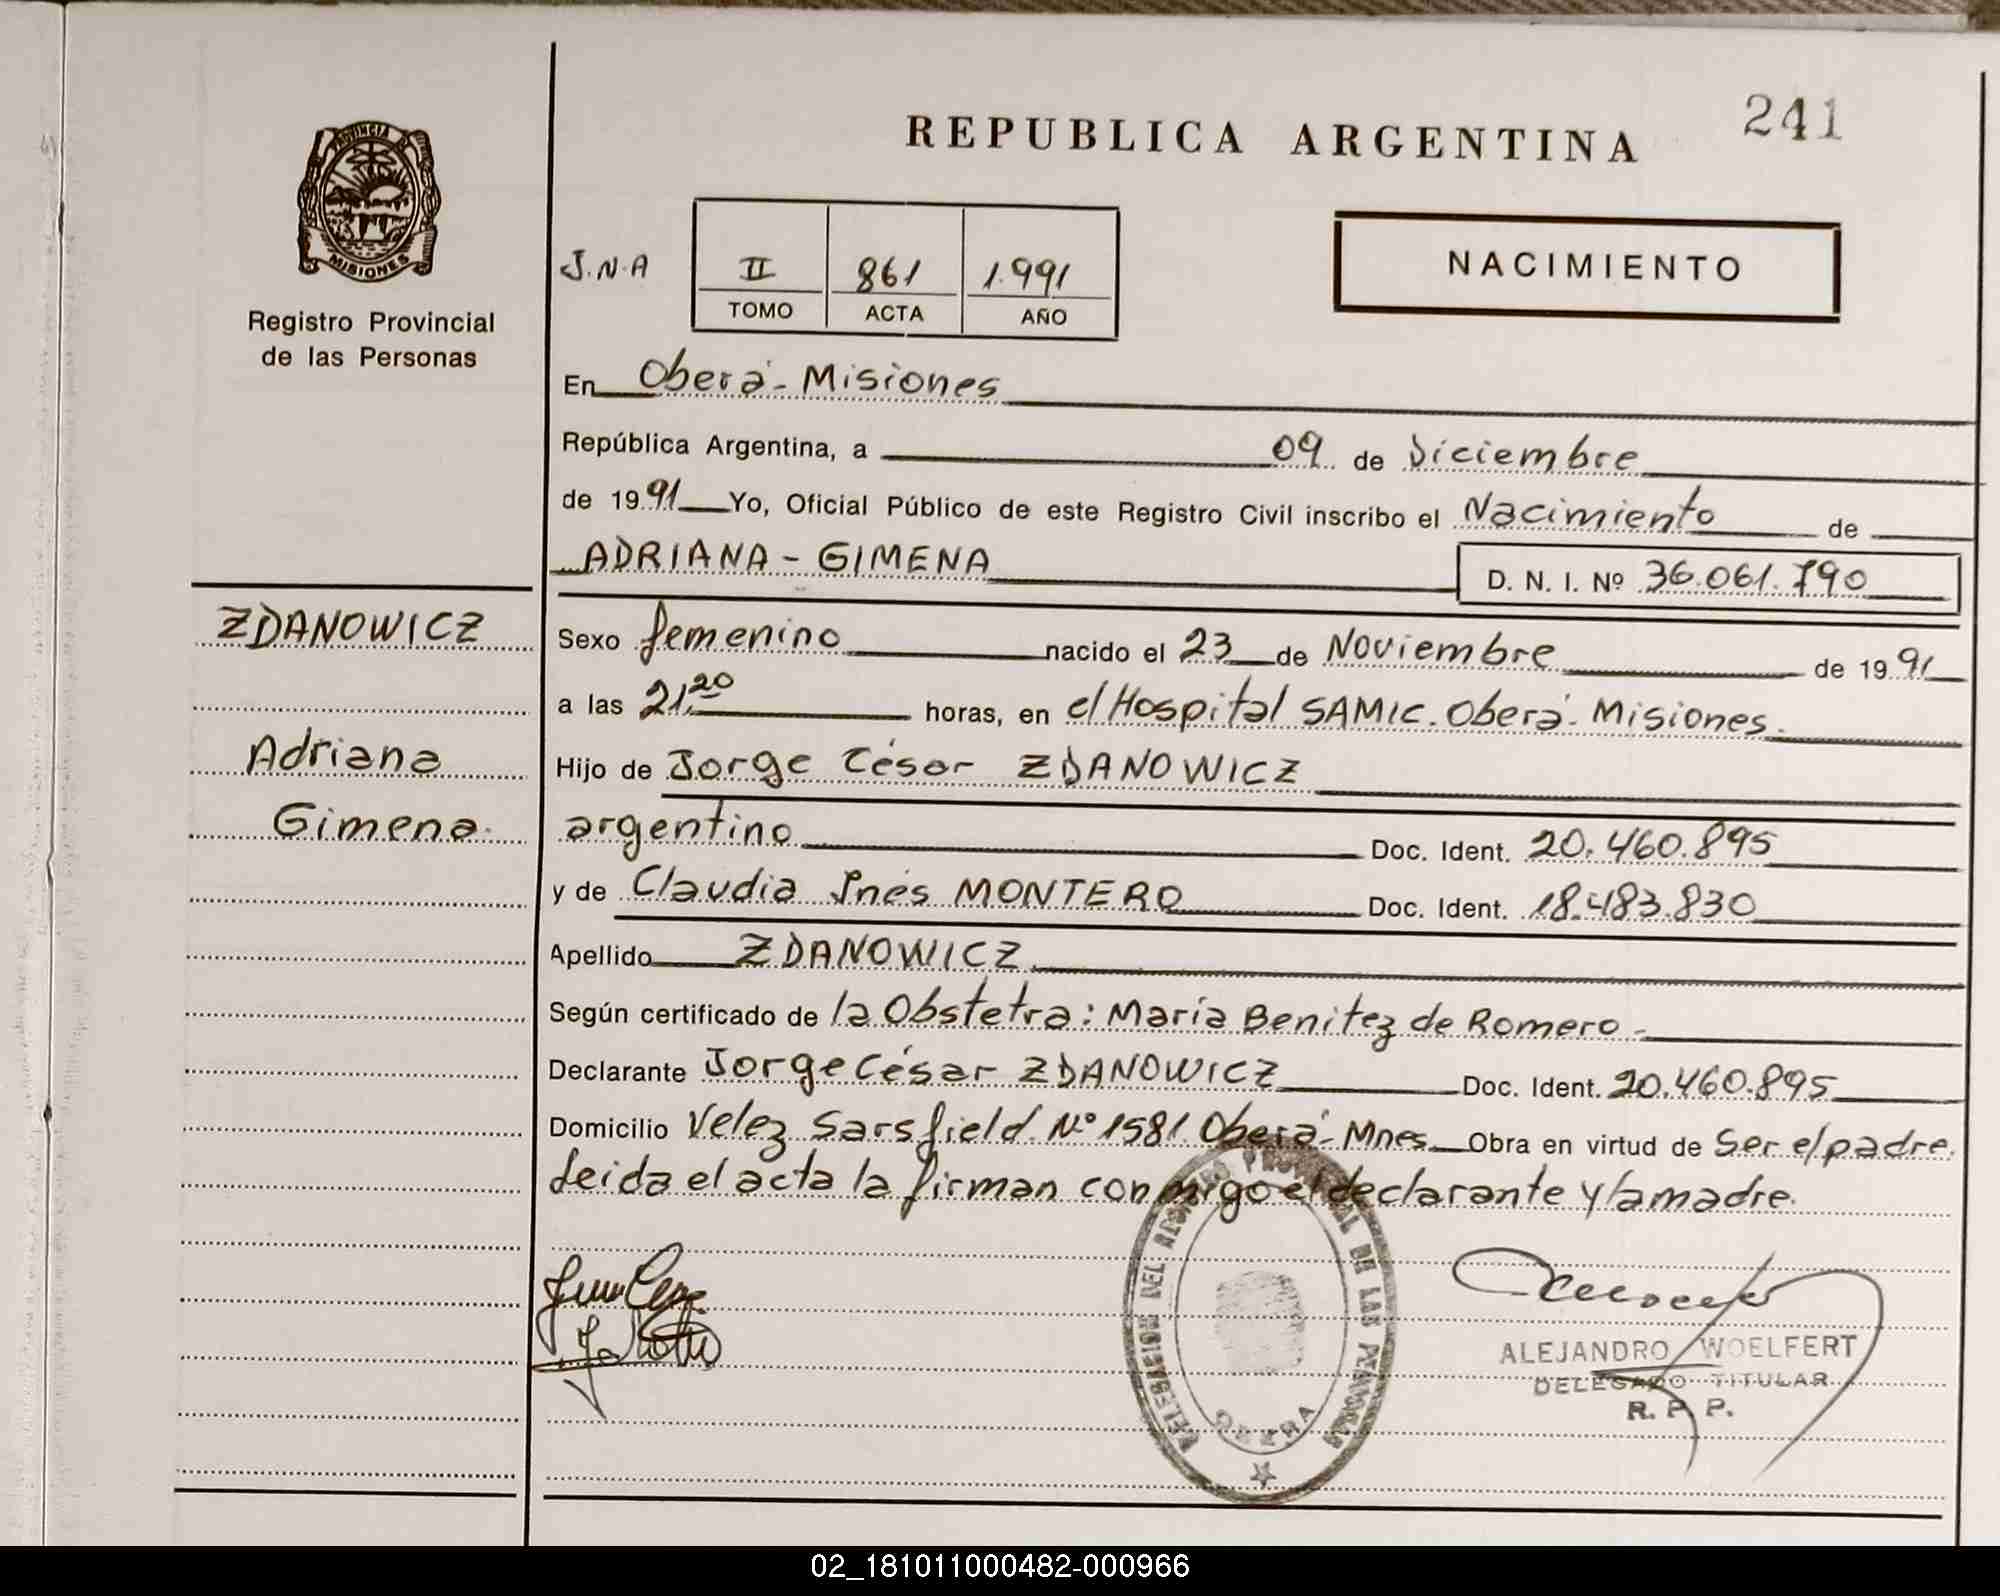 241
REPUBLICA ARGENTINA
PROVINCIA
MISIONES
Registro Provincial
de las Personas
J.N.A II 861 1.991
TOMO ACTA AÑO
NACIMIENTO
En Oberá - Misiones
República Argentina, a 09 de Diciembre
de 1991 Yo, Oficial Público de este Registro Civil inscribo el Nacimiento de
ADRIANA - GIMENA D. N. I. Nº 36.061.790
ZDANOWICZ
Adriana
Gimena.
Sexo femenino nacido el 23 de Noviembre de 1991
a las 21,20 horas, en el Hospital SAMIC. Oberá - Misiones.
Hijo de Jorge César ZDANOWICZ
argentino Doc. Ident. 20.460.895
y de Claudia Inés MONTERO Doc. Ident. 18.483.830
Apellido ZDANOWICZ
Según certificado de la Obstetra: María Benitez de Romero -
Declarante Jorge César ZDANOWICZ Doc. Ident. 20.460.895
Domicilio Velez Sarsfield Nº 1581 Oberá - Mnes. Obra en virtud de Ser el padre.
Leida el acta la firman conmigo el declarante y la madre.
DELEGACION DEL REGISTRO PROVINCIAL DE LAS PERSONAS
OBERA
ALEJANDRO WOELFERT
DELEGADO TITULAR
R. P. P.
02_181011000482-000966